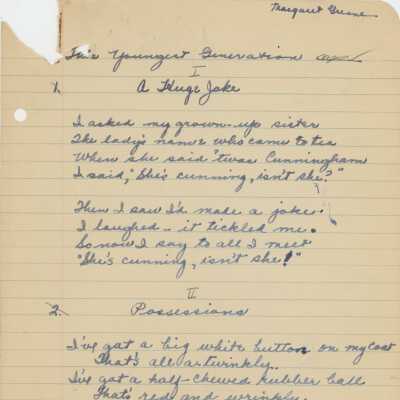 Margaret Greene
This Youngest Generation
I
1. A Huge Joke
I asked my grown-up sister
The lady's name who came to tea
When she said 'twas Cunningham
I said, "She's cunning, isn't she?"
Then I saw I'd made a joke.
I laughed - it tickled me.
So now I say to all I meet
"She's cunning, isn't she!"
II
2. Possessions
I've got a big white button on my coat
That's all a-twinkly..
I've got a half-chewed rubber ball
That's red and wrinkly.